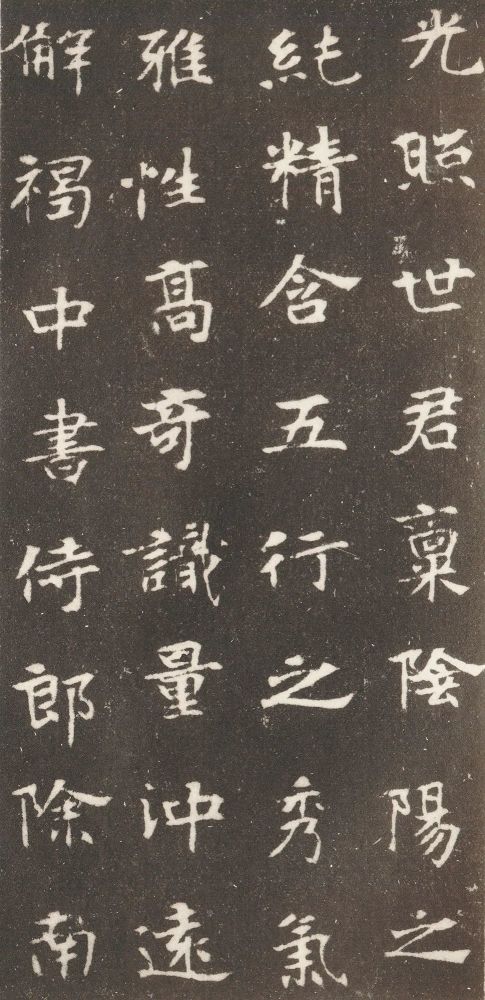 光照世君稟陰陽之
純精含五行之秀氣
雅性高奇識量沖遠
解褐中書侍郎除南